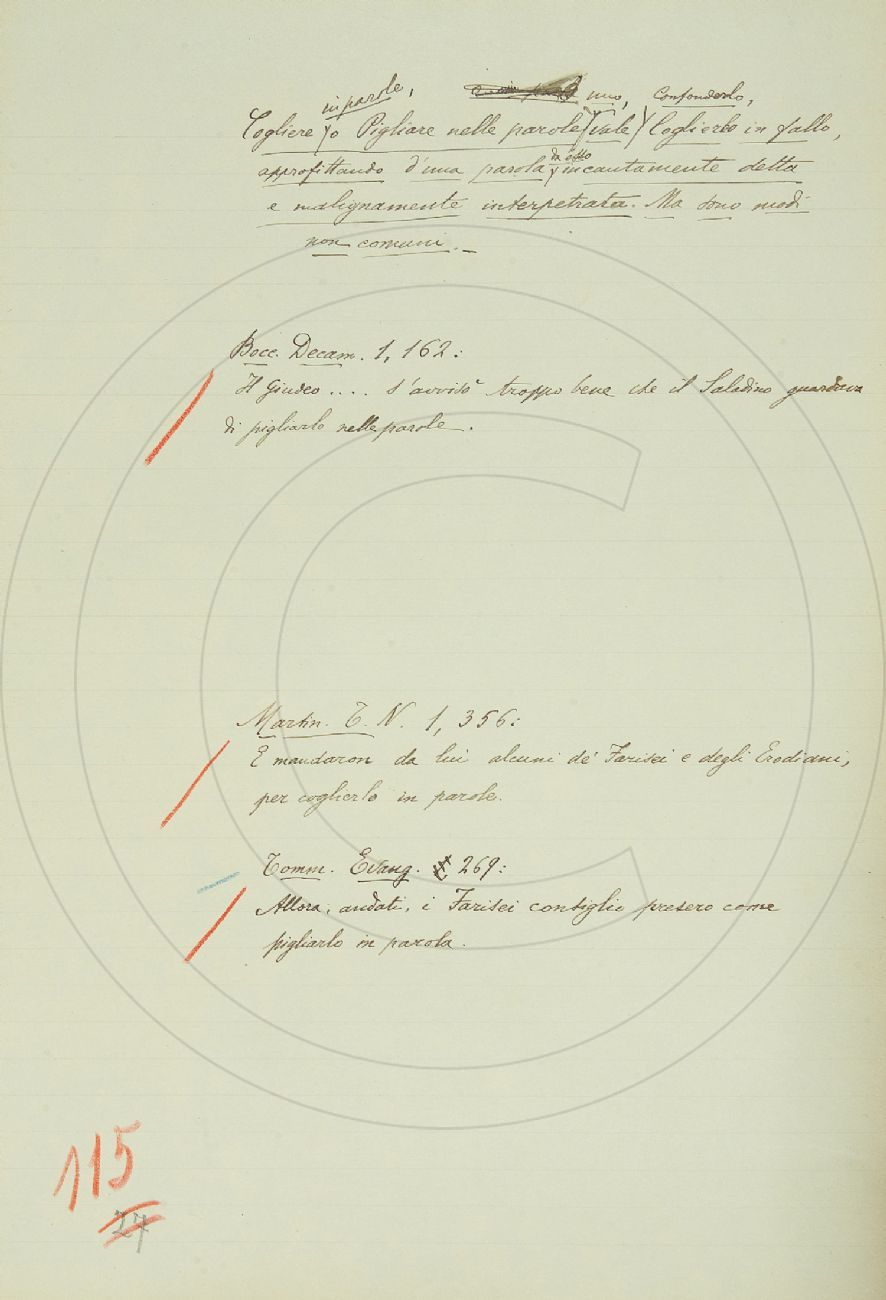 in parole, uno, Confonderlo,
Cogliere o Pigliare nelle parole (vale) Coglierlo in fallo,
da esso
approfittando d'una parola incautamente detta
e malignamente interpetrata. Ma sono modi
non comuni. _
Bocc. Decam. 1, 162:
Il Giudeo .... s'avvisò troppo bene che il Saladino guardava
di pigliarlo nelle parole.
Martin. T. N. 1, 356:
E mandaron da lui alcuni de' Farisei e degli Erodiani,
per coglierlo in parole.
Tomm. Evang. 269:
Allora, andati, i Farisei consiglio presero come
pigliarlo in parola.
115
27